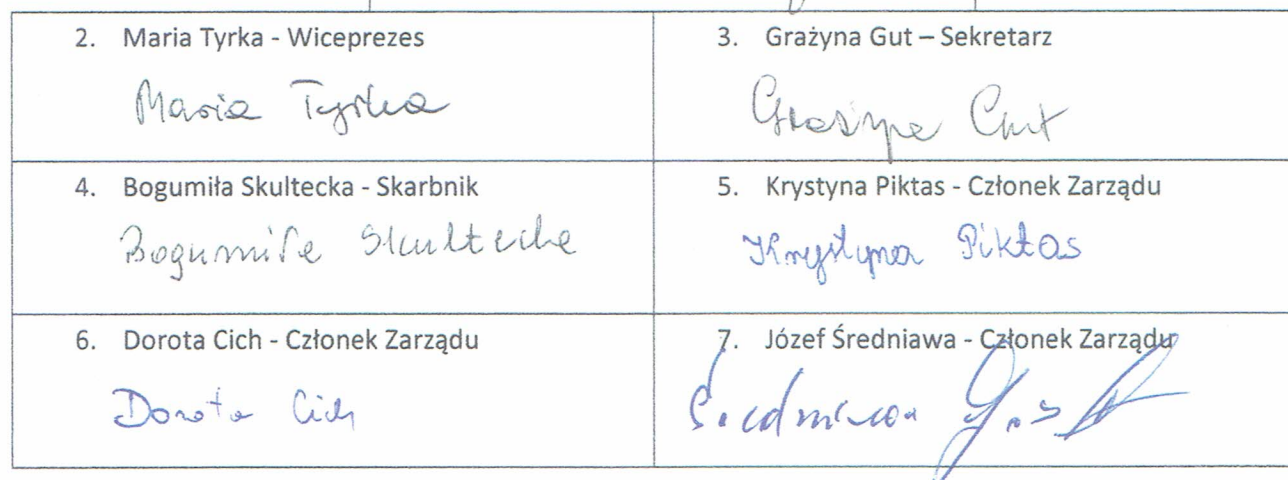 2. Maria Tyrka - Wiceprezes
Maria Tyrka
3. Grażyna Gut – Sekretarz
Grażyna Gut
4. Bogumiła Skultecka - Skarbnik
Bogumiła Skultecka
5. Krystyna Piktas - Członek Zarządu
Krystyna Piktas
6. Dorota Cich - Członek Zarządu
Dorota Cich
7. Józef Średniawa - Członek Zarządu
Średniawa Józef